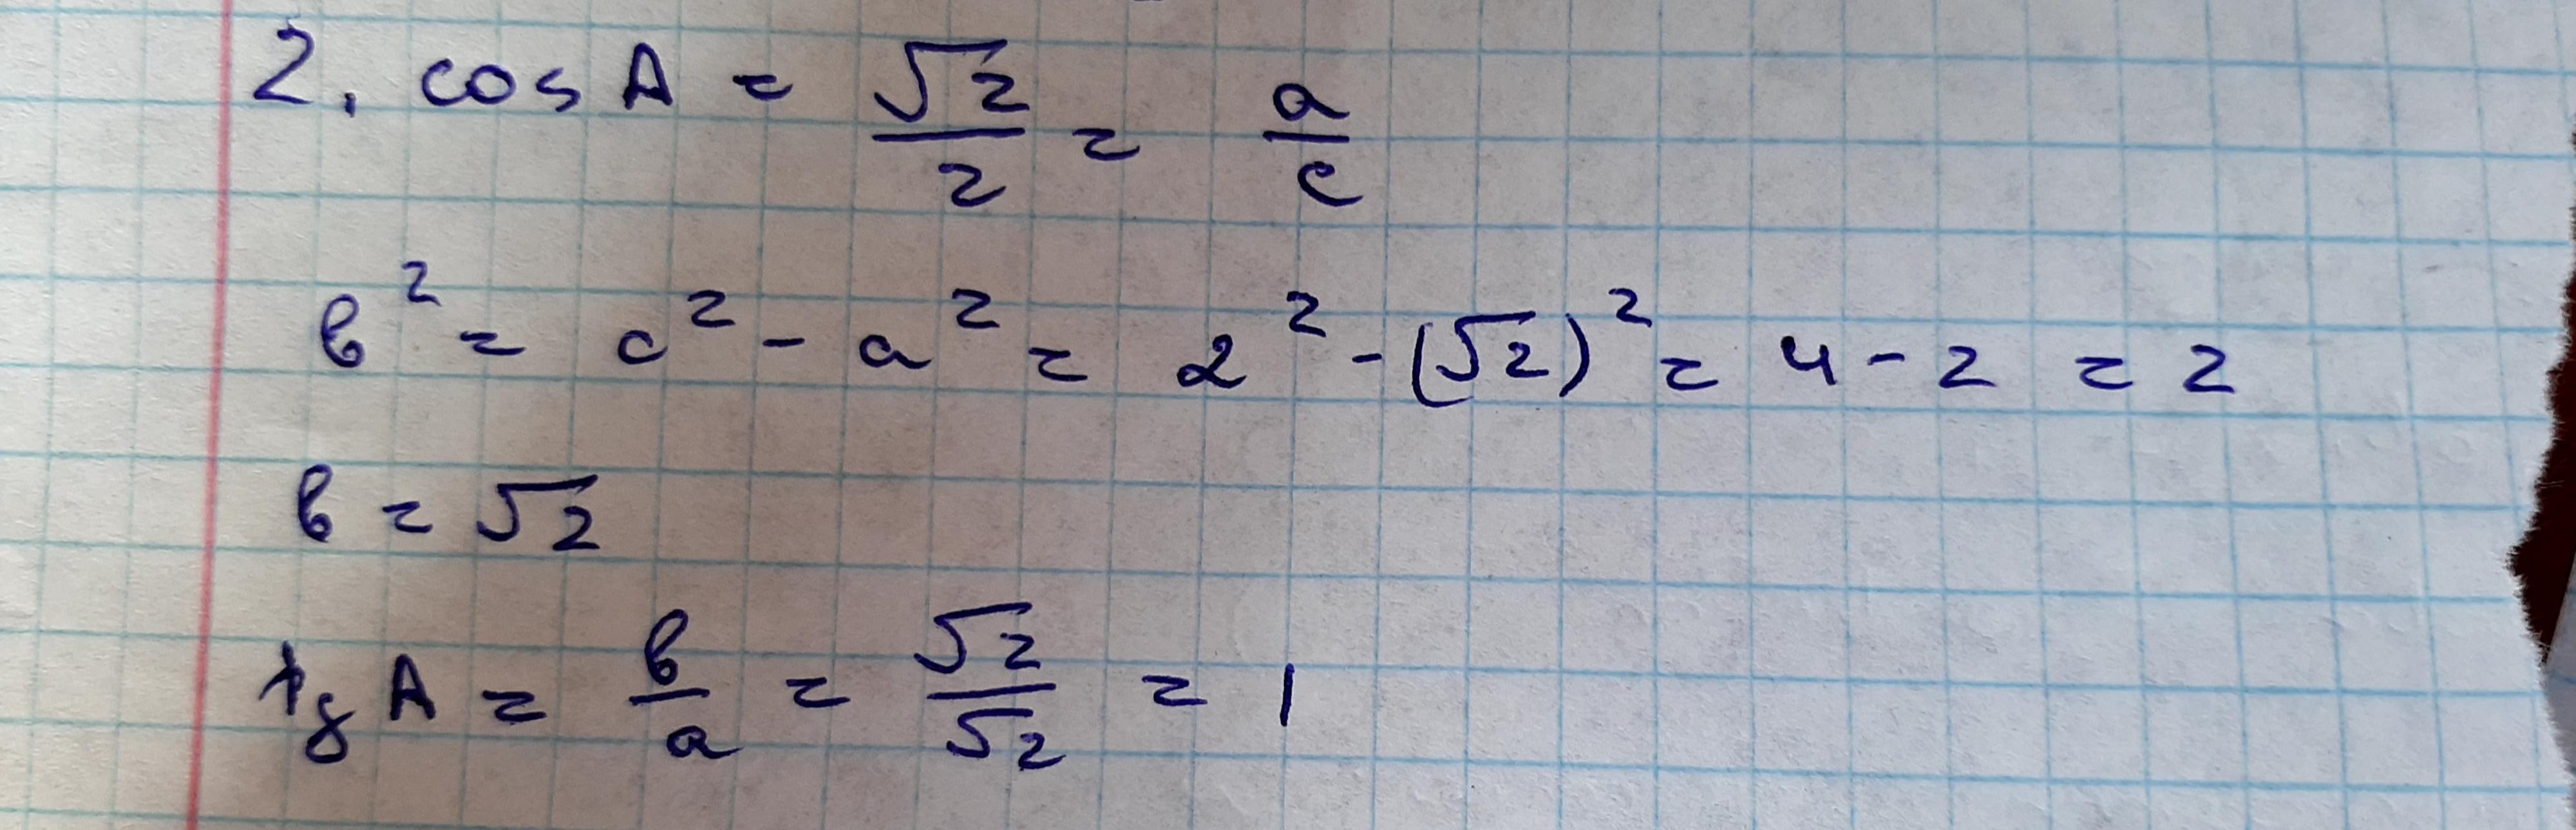 2. cos A = √2/2 = a/c
в² = c² - a² = 2² - (√2)² = 4 - 2 = 2
в = √2
tg A = в/a = √2/√2 = 1